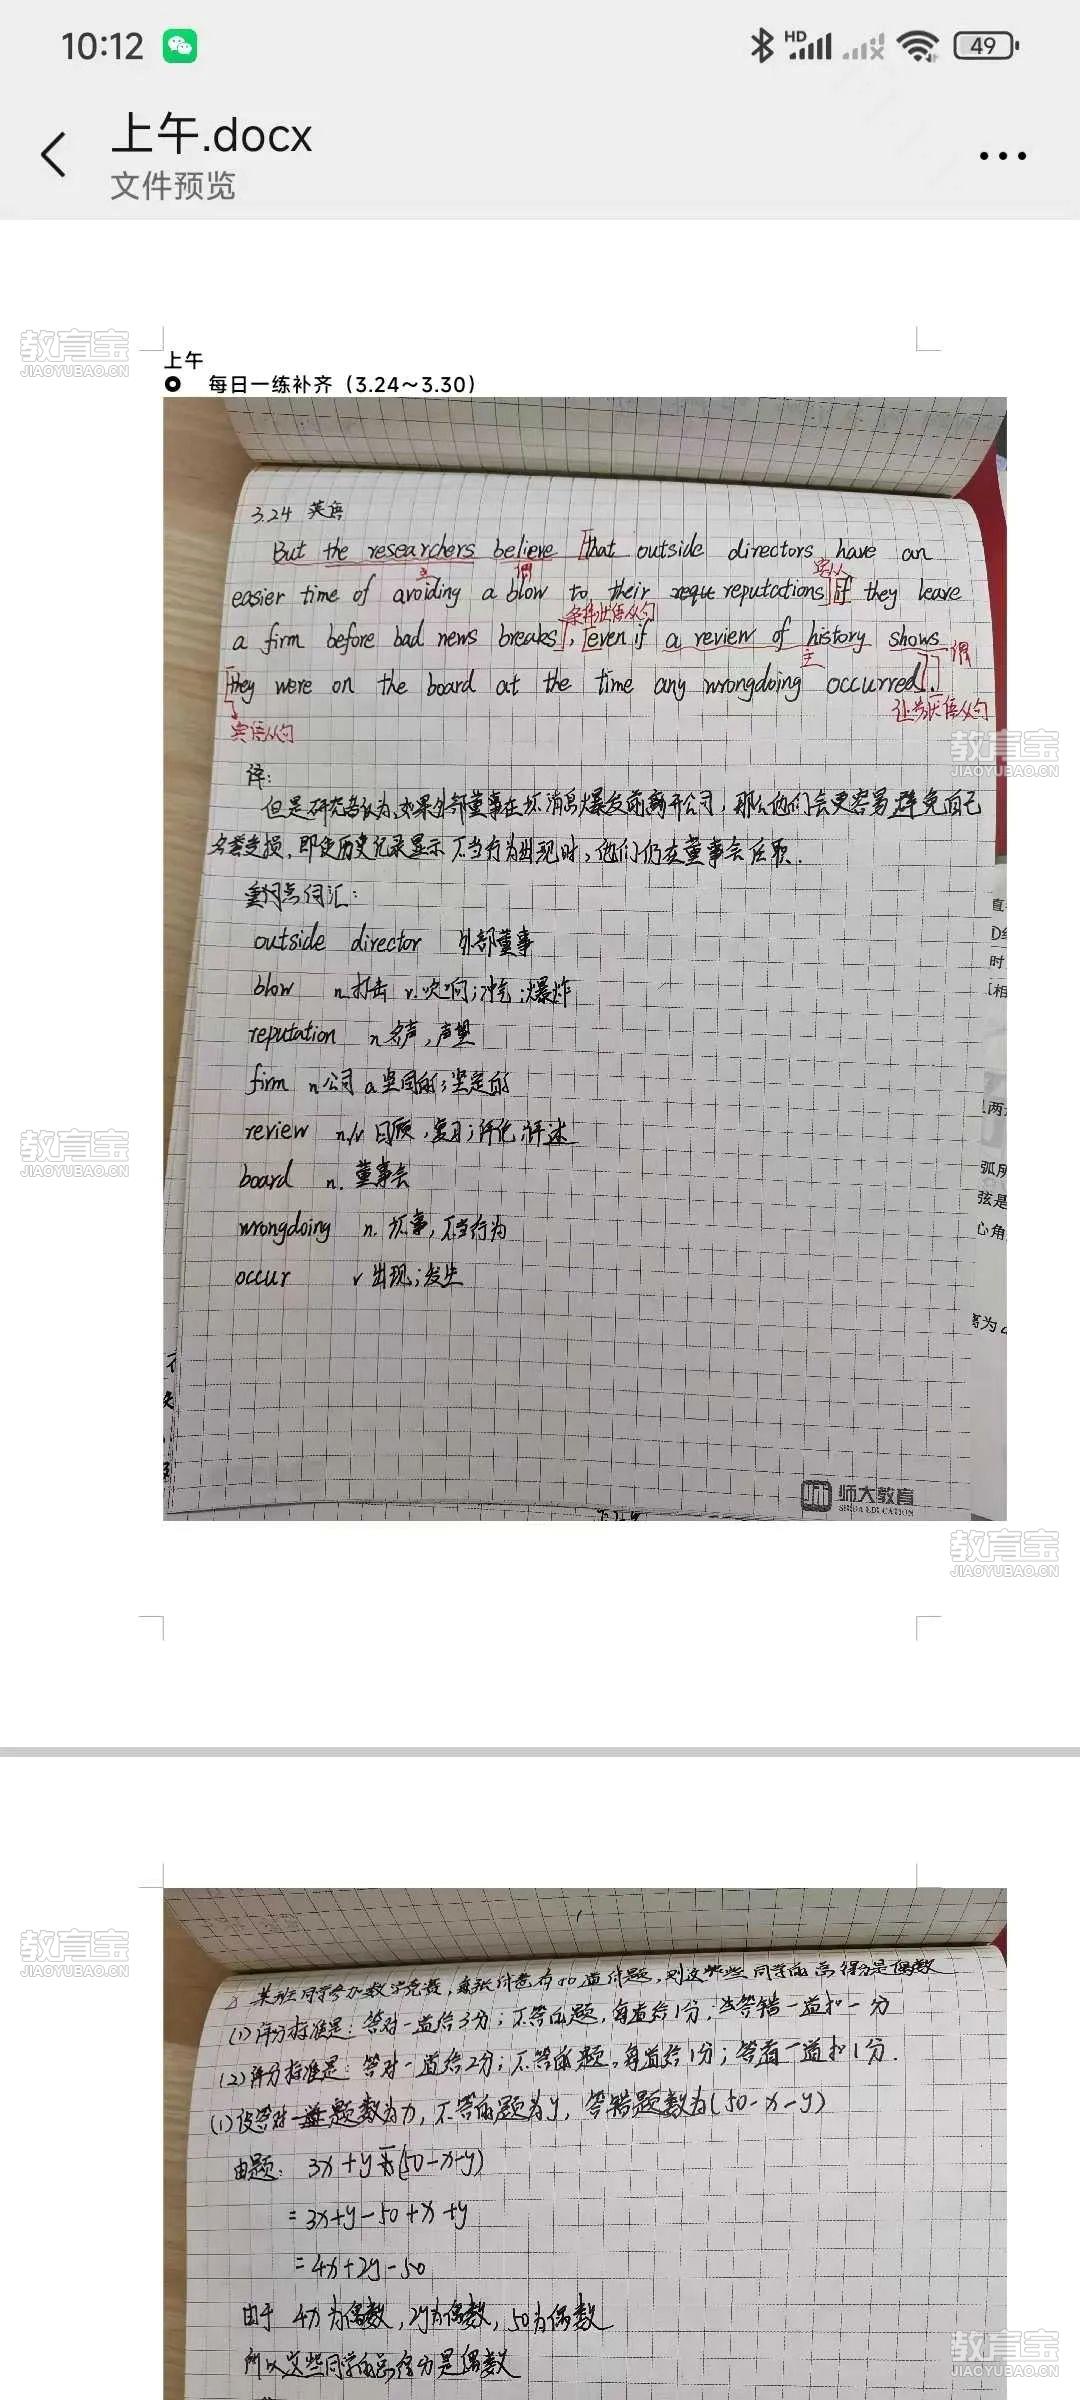 10:12
HD
49
上午.docx
文件预览
教育宝
JIAOYUBAO.CN
上午
每日一练补齐（3.24～3.30）
3.24 英语
But the researchers believe [that outside directors have an
主 谓 宾从
easier time of avoiding a blow to their reputations] [if they leave
条件状语从句
a firm before bad news breaks], [even if a review of history shows
主 谓
[they were on the board at the time any wrongdoing occurred].]
宾语从句
让步状语从句
教育宝
JIAOYUBAO.CN
译：
但是研究者认为，如果外部董事在坏消息爆发前离开公司，那么他们会更容易避免自己
名誉受损，即使历史记录显示不当行为出现时，他们仍在董事会任职．
重点词汇：
outside director 外部董事
blow n.打击 v.吹响；冲气；爆炸
reputation n 名声，声望
firm n 公司 a 坚固的；坚定的
review n/v 回顾，复习；评论；评述
教育宝
JIAOYUBAO.CN
board n. 董事会
wrongdoing n. 坏事，不当行为
occur v 出现；发生
直
时
[相
弧所
弦是
心角
师大教育
SHIDA EDUCATION
教育宝
JIAOYUBAO.CN
教育宝
JIAOYUBAO.CN
某班同学参加数学竞赛，每张试卷有50道试题，则这些同学的总得分是偶数
(1)评分标准是：答对一道给3分；不答的题，每道给1分；当答错一道扣一分
(2)评分标准是：答对一道给2分；不答的题，每道给1分；答着一道扣1分．
(1)设答对题数为x，不答的题为y，答错题数为(50-x-y)
由题： 3x+y-(50-x-y)
=3x+y-50+x+y
=4x+2y-50
由于 4x为偶数，2y为偶数，50为偶数
所以这些同学的总得分是偶数
教育宝
JIAOYUBAO.CN